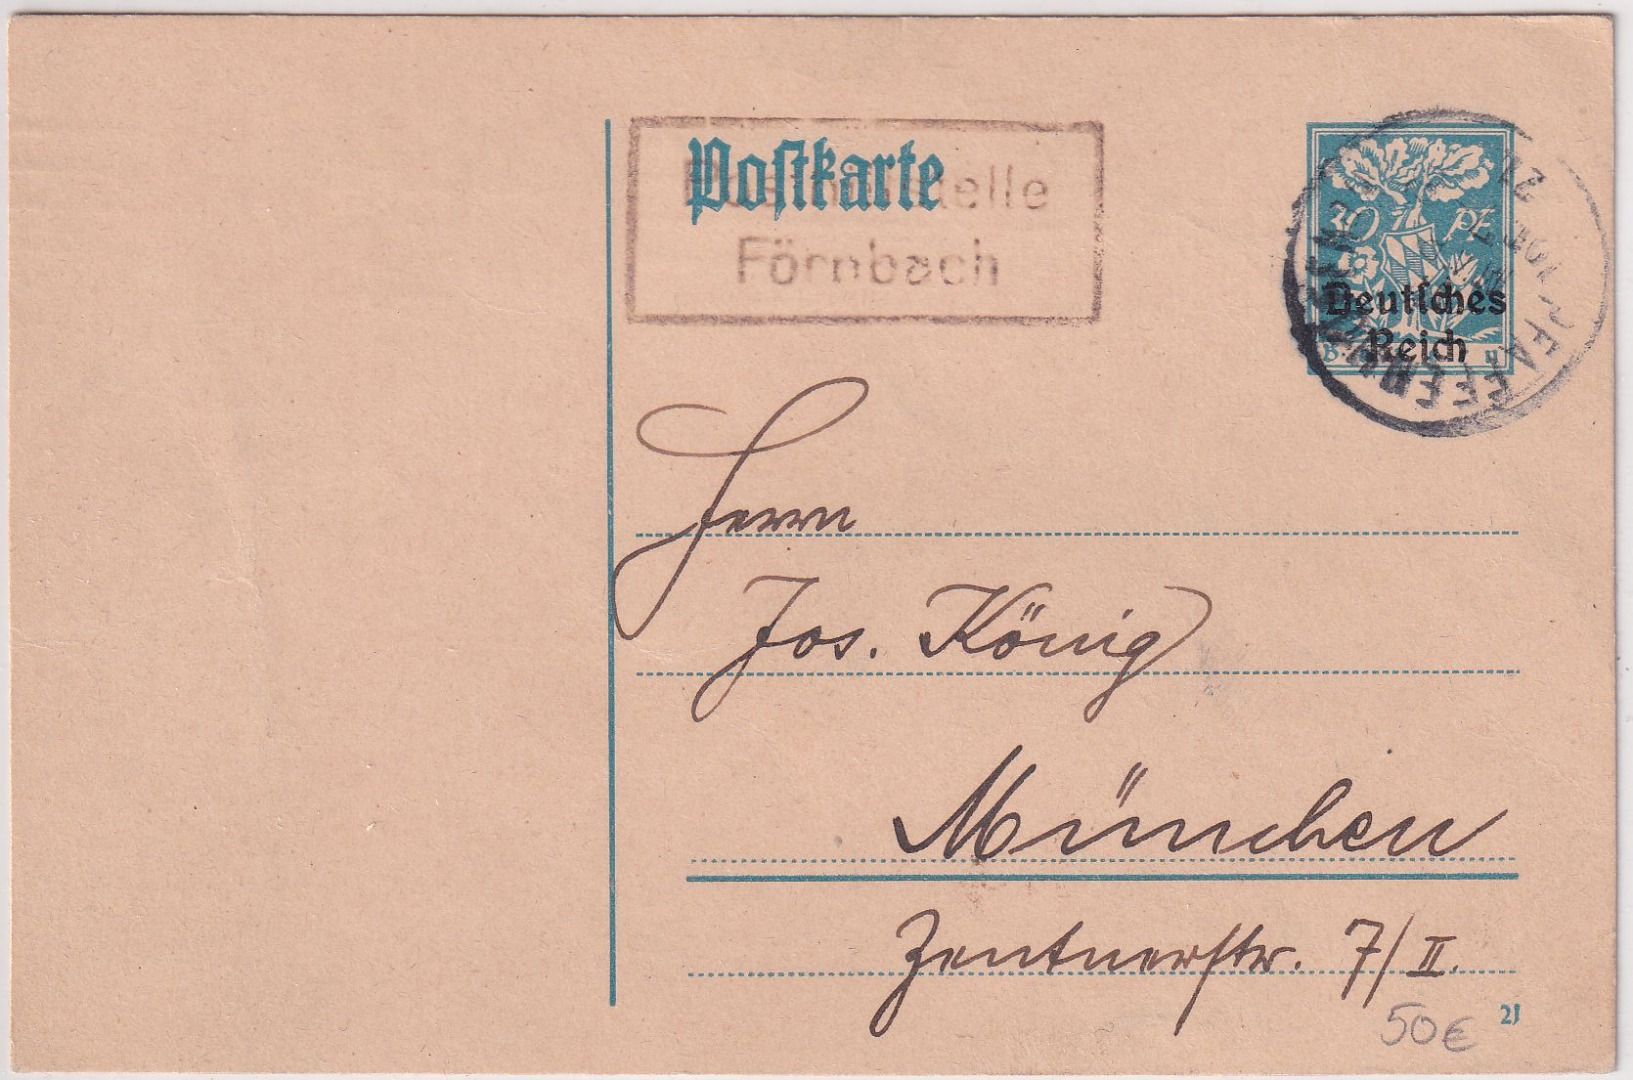 Postkarte
Förnbach
30 Pf
Deutsches
Reich
PFAFFENHOFEN
Herrn
Jos. König
München
Zentnerstr. 7/II.
21
50€